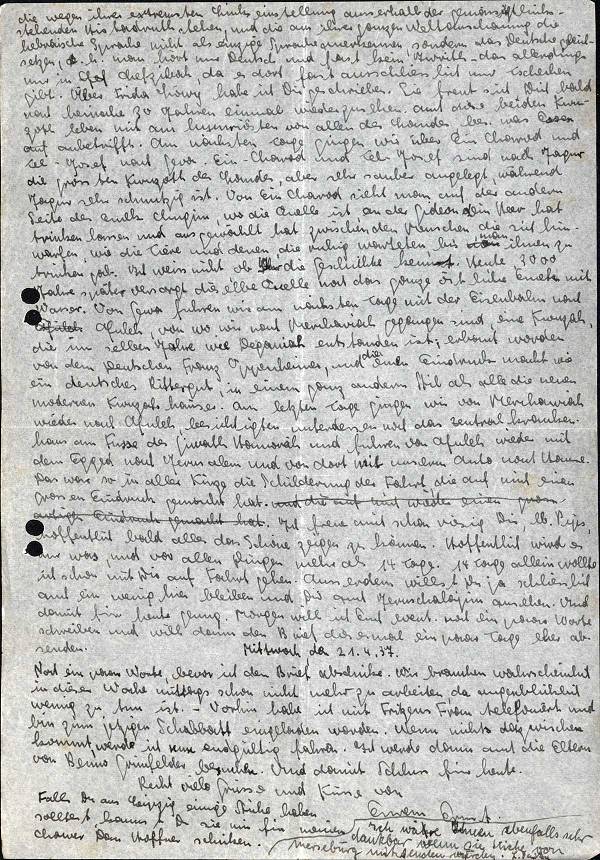 die wegen ihrer extremsten Linkseinstellung ausserhalb der
stehenden Histadruth stehen, und die aus ihrer ganzen Weltanschauung die
hebräische Sprache nicht als einzige Sprache anerkennen sondern das Deutsche gleich-
setzen, d.h. man hört nur Deutsch und fast kein Iwrith - das allerdings
nur in da es dort fast ausschliesslich nur Tschechen
gibt. Über Frida habe ich Dir geschrieben. Sie freut sich Dich bald
nach beinahe 20 Jahren einmal wiederzusehen. auch diese beiden Kwu-
zoth leben mit am luxuriösten von allen des Landes bes. was Essen
auf anbetrifft. Am nächsten Tage gingen wir über Ein Charod und
Tel-Josef nach Gewa. Ein-Charod und Tel Josef sind nach Jagur
die grössten Kwuzoth des Landes, aber sehr sauber angelegt, während
Jagur sehr schmutzig ist. Von Ein Charod sieht man auf der andern
Seite des Emeks wo die Quelle ist an der Gideon sein Heer hat
trinken lassen und ausgewählt hat zwischen den Menschen die sich hin-
warfen wie die Tiere und denen die ruhig warteten bis man ihnen zu
trinken gab. Ich weiss nicht ob Ihr die Geschichte kennt. Heute 3000
Jahre später versorgt dieselbe Quelle noch das ganze östliche Emek mit
Wasser. Von Gewa fuhren wir am nächsten Tage mit der Eisenbahn nach
Afuleh, von wo wir nach Merchawiah gegangen sind, eine Kwuzah,
die im selben Jahre wie Deganiah entstanden ist, erbaut worden
von dem Deutschen Franz Oppenheimer, und die einen Eindruck macht wie
ein deutsches Rittergut, in einem ganz andern Stil als alle die neuen
modernen Kwuzahhäuser. Am letzten Tage gingen wir von Merchawiah
wieder nach Afuleh besichtigten unterdessen noch das Zentralkranken-
haus am Fusse des Giwath Hamoreh und fuhren von Afuleh wieder mit
dem Egged nach Jerusalem und von dort mit unserem Auto nach Hause.
Das war so in aller Kürze die Schilderung der Fahrt die auf mich einen
grossen Eindruck gemacht hat. und die auf mich wieder einen gross-
artigen Eindruck gemacht hat. Ich freue mich schon riesig Dir, lb. Paps,
hoffentlich bald alles das Schöne zeigen zu können. Hoffentlich wird es
nur was, und vor allen Dingen mehr als 14 Tage. 14 Tage allein wollte
ich schon mit Dir auf Fahrt gehen. Ausserdem willst Du ja schliesslich
auch ein wenig hier bleiben und Dir auch Jeruschalajim ansehen. Und
damit für heute genug. Morgen will ich Euch event. noch ein paar Worte
schreiben und will dann den Brief diesmal ein paar Tage eher ab-
senden.
Mittwoch den 21.4.37.
Noch ein paar Worte, bevor ich den Brief abschicke. Wir brauchen wahrscheinlich
in dieser Woche mittags schon nicht mehr zu arbeiten da augenblicklich
wenig zu tun ist. - Vorhin habe ich mit Fritzens Frau telefoniert und
bin zum jetzigen Schabbath eingeladen worden. Wenn nichts dazwischen
kommt, werde ich nun endgültig fahren. Ich werde dann auch die Eltern
von Benno Grünfelder besuchen. Und damit Schluss für heute.
Recht viele Grüsse und Küsse von
Eurem Ernst.
Falls Du aus Leipzig einige Stiche haben
solltest, kannst Du sie mir für meinen
chawer Dan Hoffner schicken.
Ich wäre Ihnen ebenfalls sehr
dankbar wenn Sie Stiche von
Merseburg mitsenden würden.